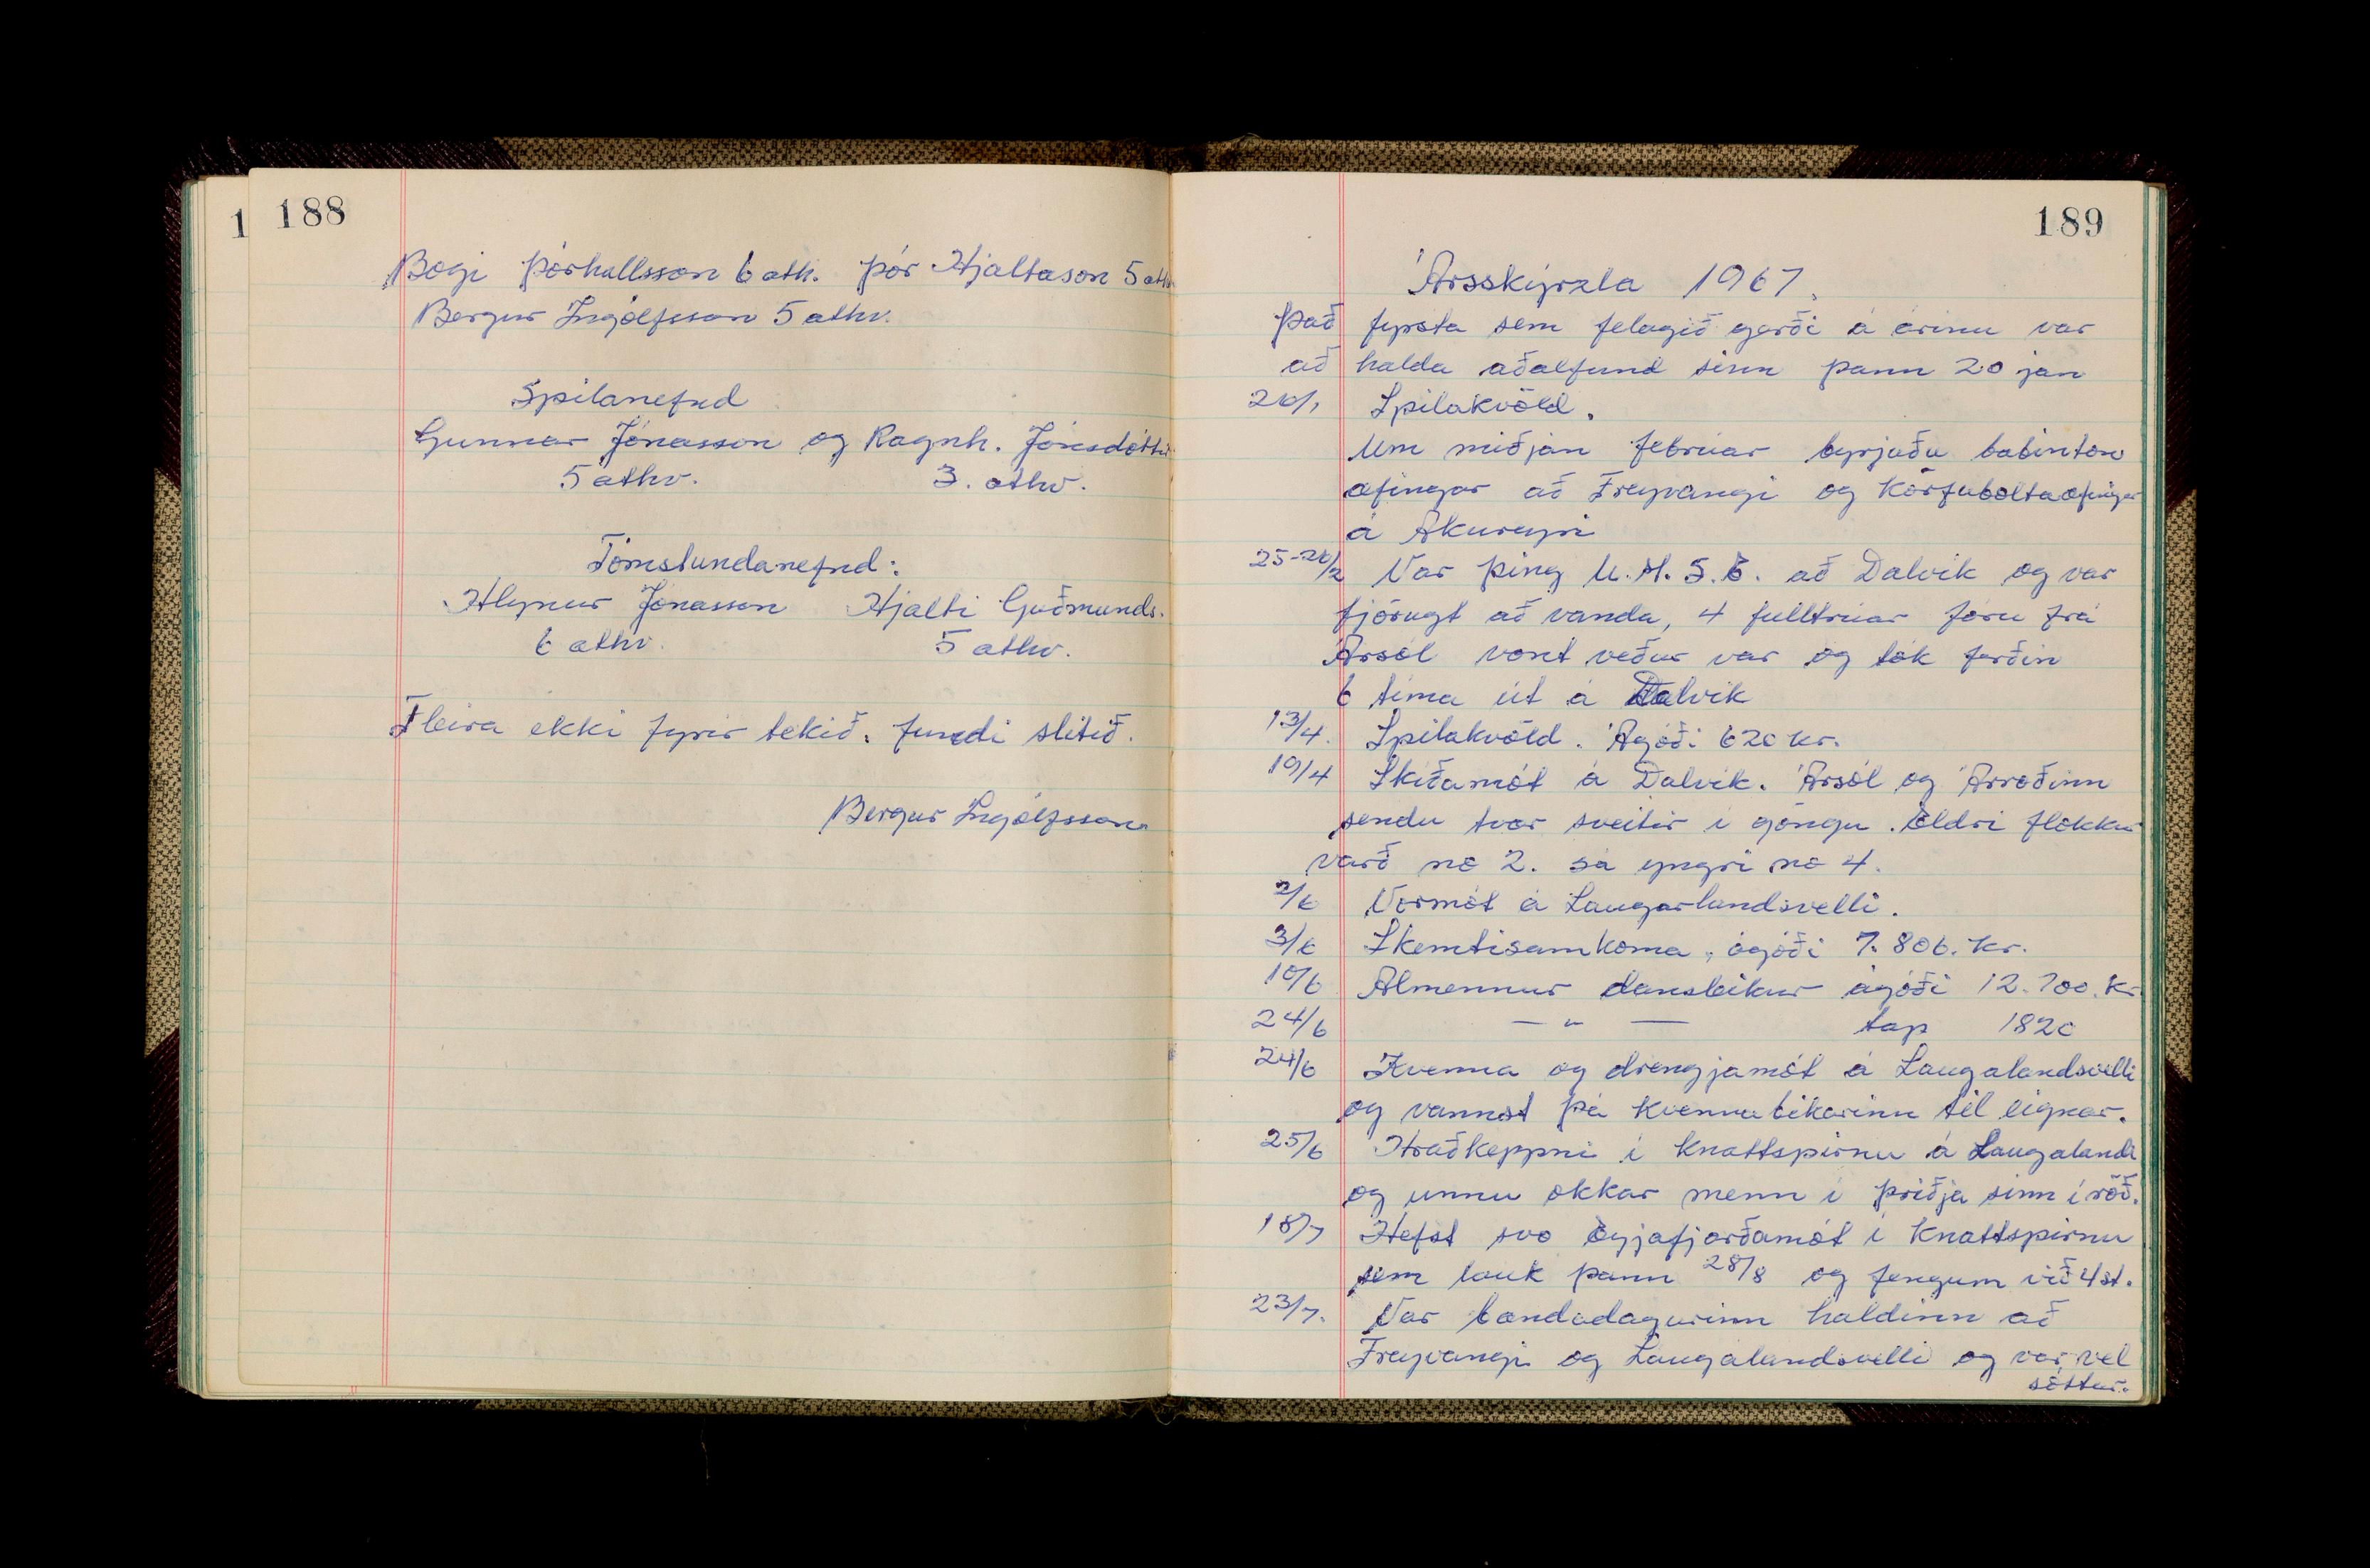 1
188
Bogi Þórhallsson 6 ath. Þór Hjaltason 5 ath
Bergur Ingólfsson 5 athv.
Spilanefnd
Gunnar Jónasson og Ragnh. Jónsdóttir
5 athv. 3. athv.
Tómstundanefnd:
Hlynur Jónasson Hjalti Guðmunds.
6 athv. 5 athv.
Fleira ekki fyrir tekið. fundi slitið.
Bergur Ingólfsson
189
Ársskýrzla 1967.
Það fyrsta sem felagið gerði á árinu var
að halda aðalfund sinn þann 20 jan
26/1 Spilakvöld.
Um miðjan februar byrjuðu babinton
æfingar að Freyvangi og Körfuboltaæfingar
á Akureyri
25-26/2 Var þing U.M.S.E. að Dalvik og var
fjörugt að vanda, 4 fulltrúar fóru frá
Ársól vont veður var og tók ferðin
6 tíma út á Dalvik
13/4. Spilakvöld. Ágóði 620 kr.
19/4 Skíðamót á Dalvik. Ársól og Árroðinn
sendu tvær sveitir i göngu. Eldri flokkur
varð no 2. sá yngri no 4.
2/6 Vormót á Laugarlandsvelli.
3/6 Skemtisamkoma, ágóði 7.806. Kr.
10/6 Almennur dansleikur ágóði 12.700. Kr.
24/6 — " — tap 1820
24/6 Kvenna og drengjamót á Laugalandsvelli
og vannst þá Kvennabikarinn til eignar.
25/6 Hraðkeppni i Knattspirnu á Laugalandi
og unnu okkar menn i þriðja sinn i röð.
18/7 Hefst svo Eyjafjarðamót i Knattspirnu
sem lauk þann 28/8 og fengum við 4 st.
23/7. Var bændadagurinn haldinn að
Freyvangi og Laugalandsvelli og var vel
sóttur.